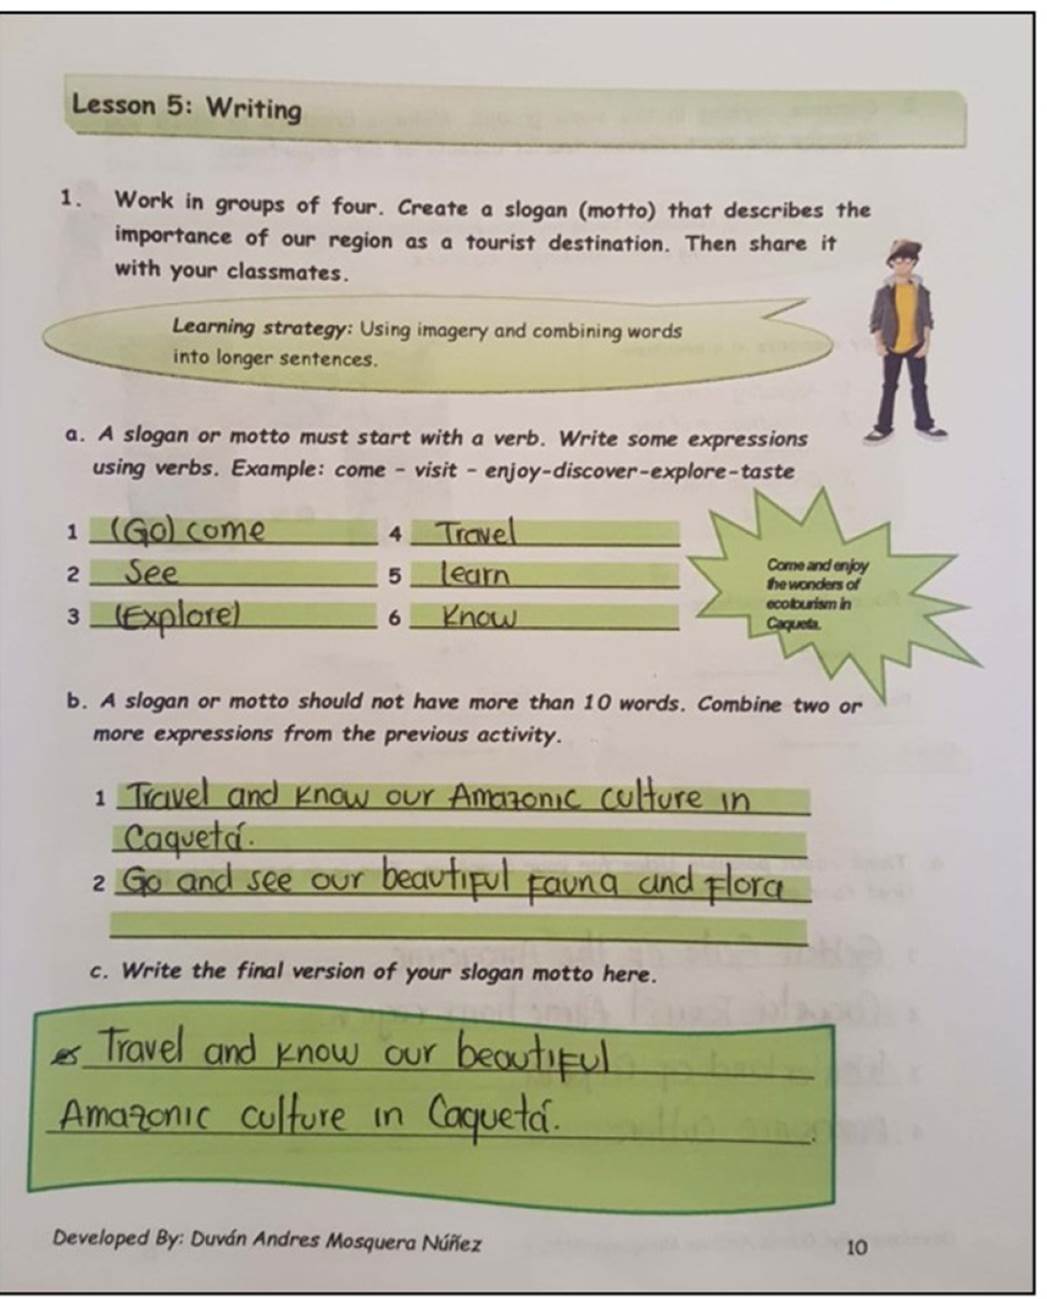 Lesson 5: Writing
1. Work in groups of four. Create a slogan (motto) that describes the
importance of our region as a tourist destination. Then share it
with your classmates.
Learning strategy: Using imagery and combining words
into longer sentences.
a. A slogan or motto must start with a verb. Write some expressions
using verbs. Example: come - visit - enjoy-discover-explore-taste
1 (Go) come 4 Travel
2 See 5 learn
3 (Explore) 6 Know
Come and enjoy
the wonders of
ecotourism in
Caqueta.
b. A slogan or motto should not have more than 10 words. Combine two or
more expressions from the previous activity.
1 Travel and know our Amazonic culture in
Caquetá.
2 Go and see our beautiful fauna and flora
c. Write the final version of your slogan motto here.
Travel and know our beautiful
Amazonic culture in Caquetá.
Developed By: Duván Andres Mosquera Núñez
10